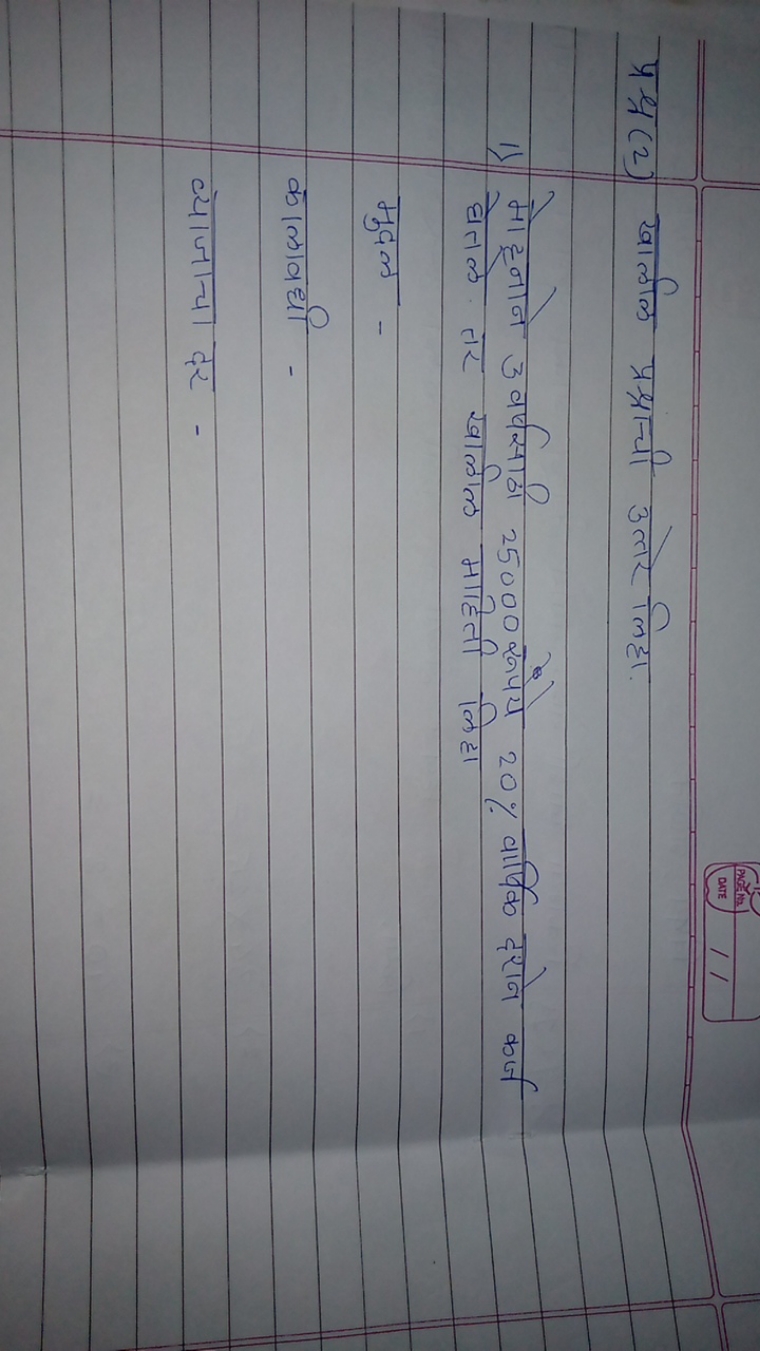 PAGE No.
DATE / /
प्रश्न (2) खालील प्रश्नाची उत्तरे लिहा.
1) मोहनने 3 वर्षासाठी 25000 रूपये 20% वार्षिक दराने कर्ज
घेतले तर खालील माहिती लिहा
मुद्दल -
कालावधी -
व्याजाचा दर -